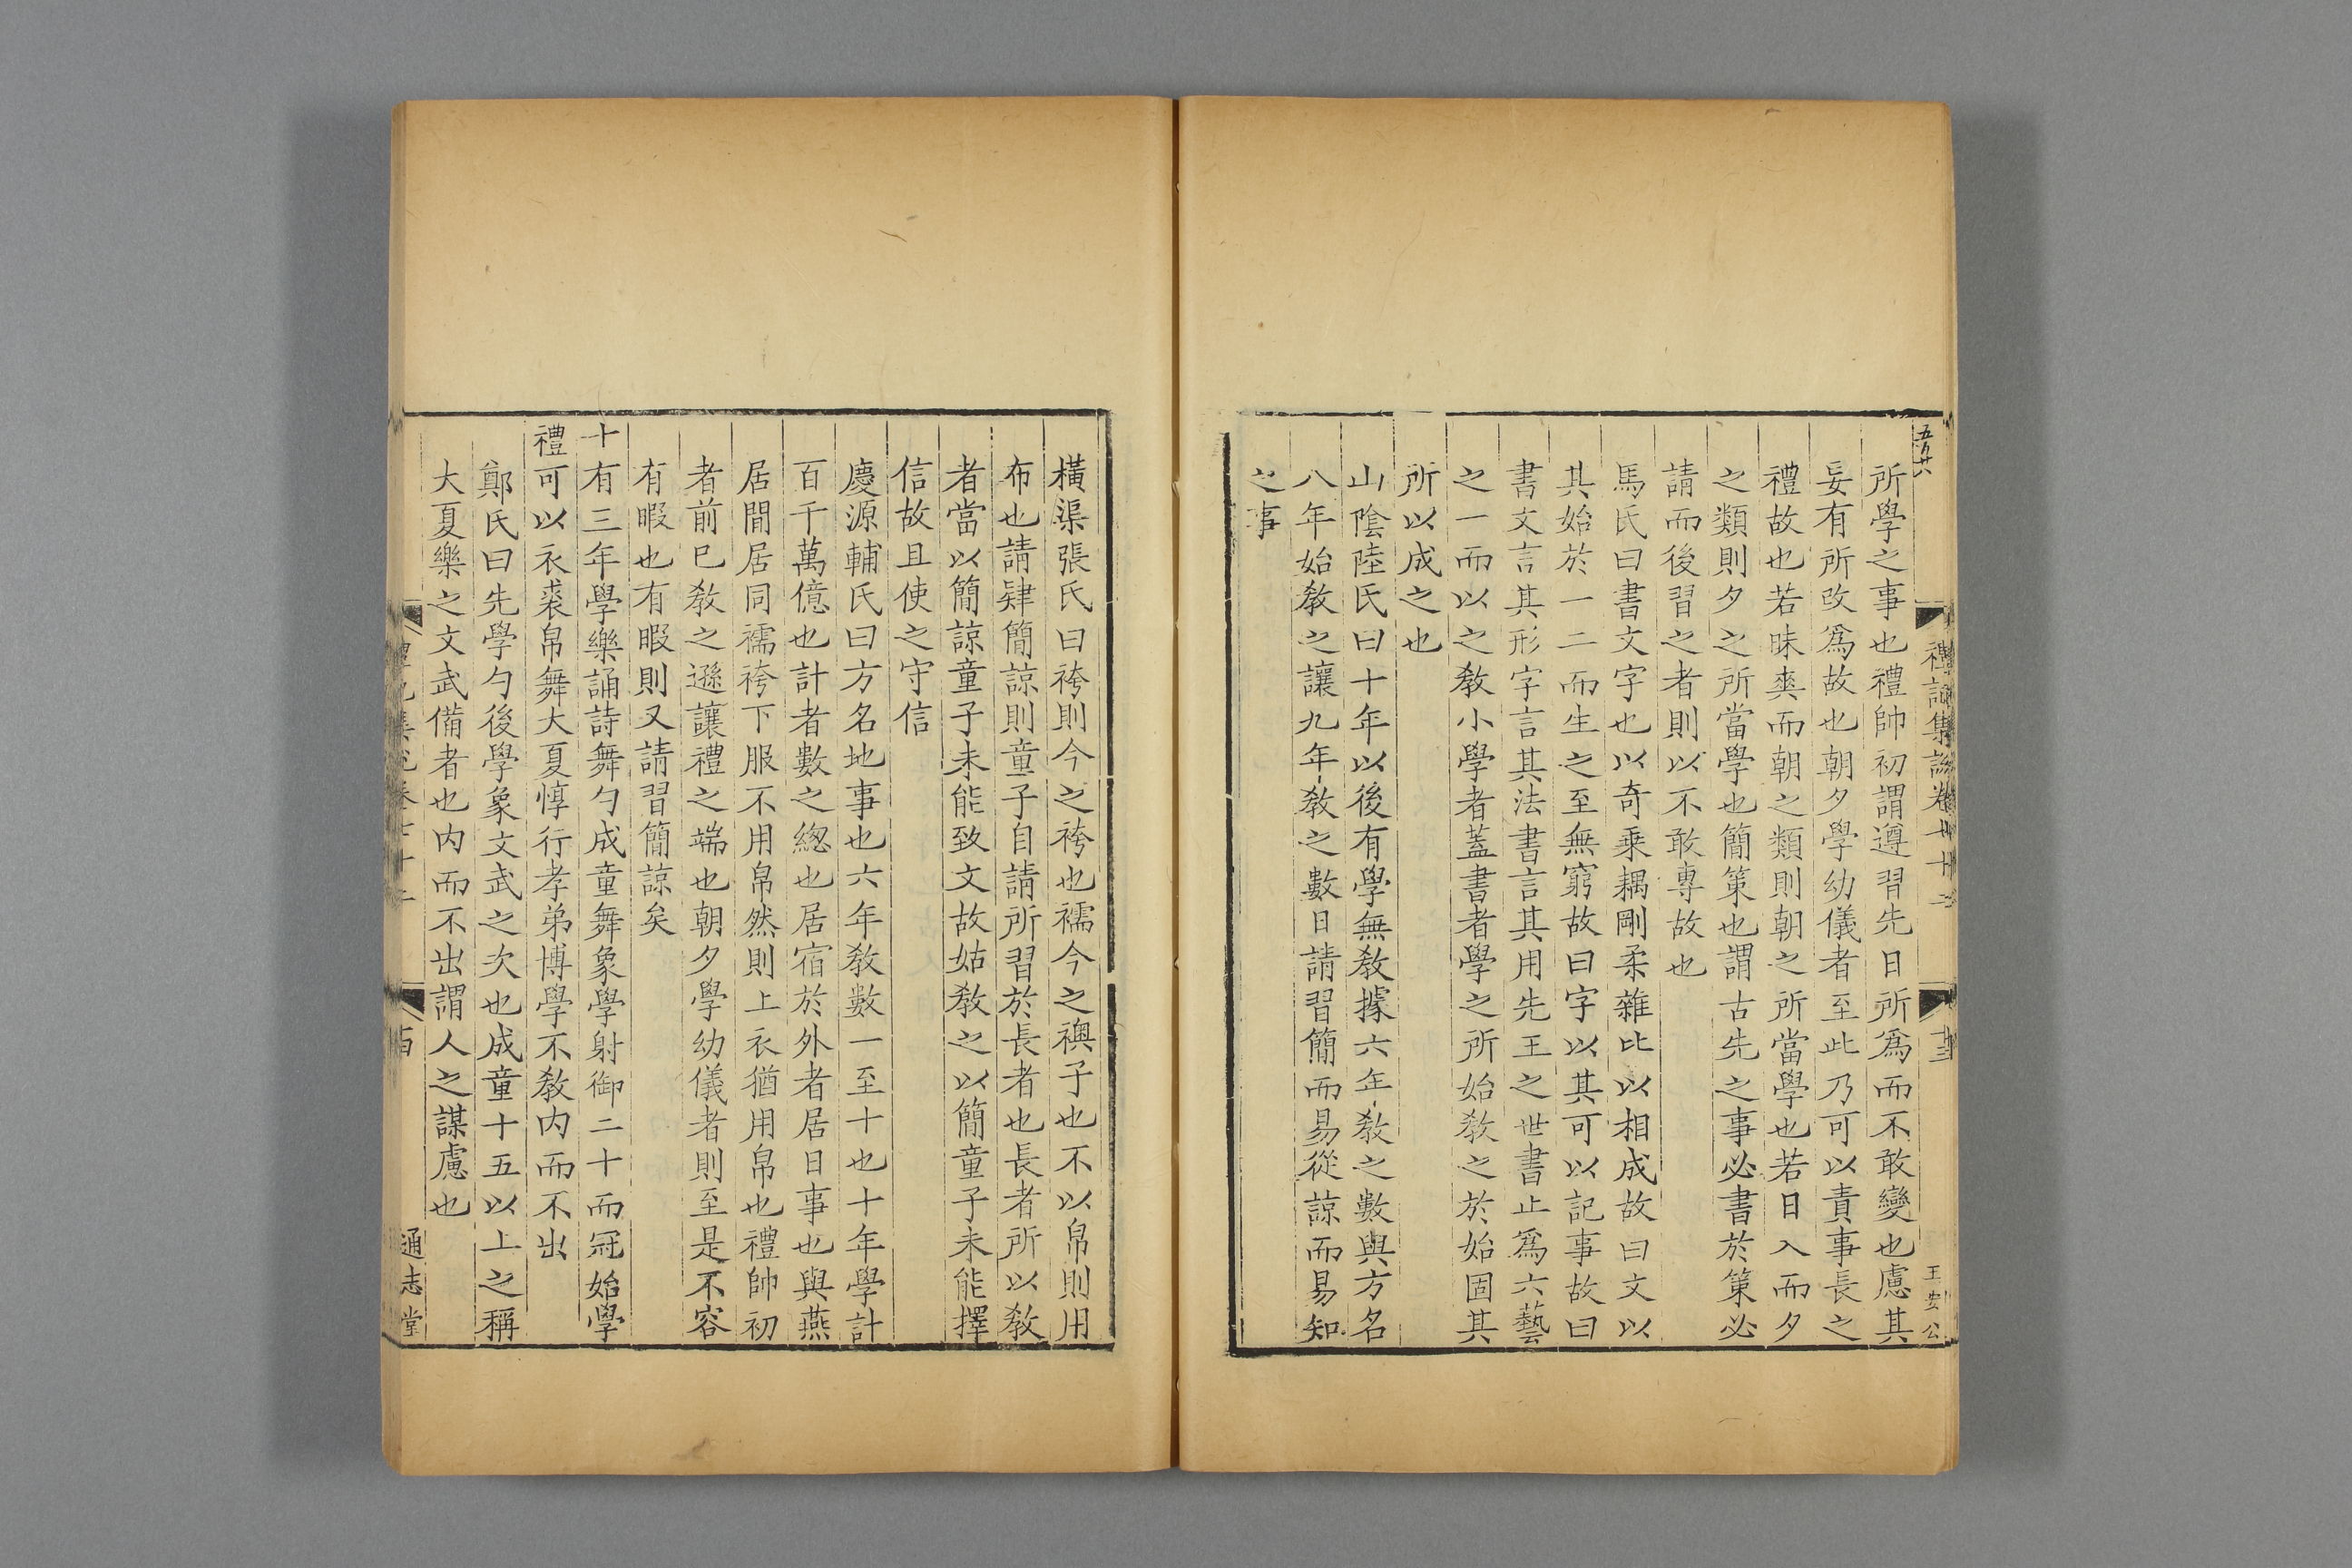 所學之事也禮帥初謂遵習先日所爲而不敢變也慮其
妄有所改爲故也朝夕學幼儀者至此乃可以責事長之
禮故也若昧爽而朝之類則朝之所當學也若日入而夕
之類則夕之所當學也簡策也謂古先之事必書於策必
請而後習之者則以不敢專故也
馬氏曰書文字也以奇乘耦剛柔雜比以相成故曰文以
其始於一二而生之至無窮故曰字以其可以記事故曰
書文言其形字言其法書言其用先王之世書止爲六藝
之一而以之敎小學者蓋書者學之所始敎之於始固其
所以成之也
山陰陸氏曰十年以後有學無敎據六年敎之數與方名
八年始敎之讓九年敎之數日請習簡而易從諒而易知
之事
王安公
橫渠張氏曰袴則今之袴也襦今之襖子也不以帛則用
布也請肄簡諒則童子自請所習於長者也長者所以敎
者當以簡諒童子未能致文故姑敎之以簡童子未能擇
信故且使之守信
慶源輔氏曰方名地事也六年敎數一至十也十年學計
百千萬億也計者數之總也居宿於外者居日事也與燕
居閒居同襦袴下服不用帛然則上衣猶用帛也禮帥初
者前已敎之遜讓禮之端也朝夕學幼儀者則至是不容
有暇也有暇則又請習簡諒矣
十有三年學樂誦詩舞勺成童舞象學射御二十而冠始學
禮可以衣裘帛舞大夏惇行孝弟博學不敎内而不出
鄭氏曰先學勺後學象文武之次也成童十五以上之稱
大夏樂之文武備者也内而不出謂人之謀慮也
通志堂